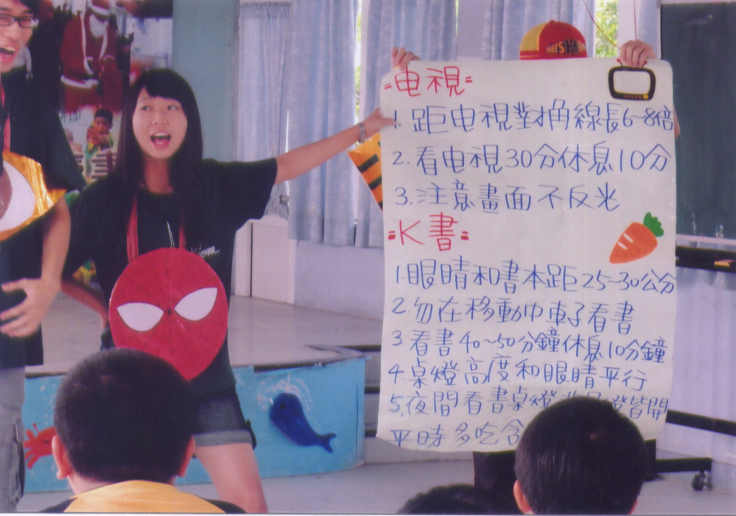 =电視=
1. 距电視對角線長6~8倍
2. 看电視30分休息10分
3. 注意畫面不反光
=K書=
1.眼睛和書本距25~30公分
2.勿在移動中車子看書
3.看書40~50分鐘休息10分鐘
4.桌燈高度和眼睛平行
5.夜間看書桌燈 燈皆開
平時多吃含